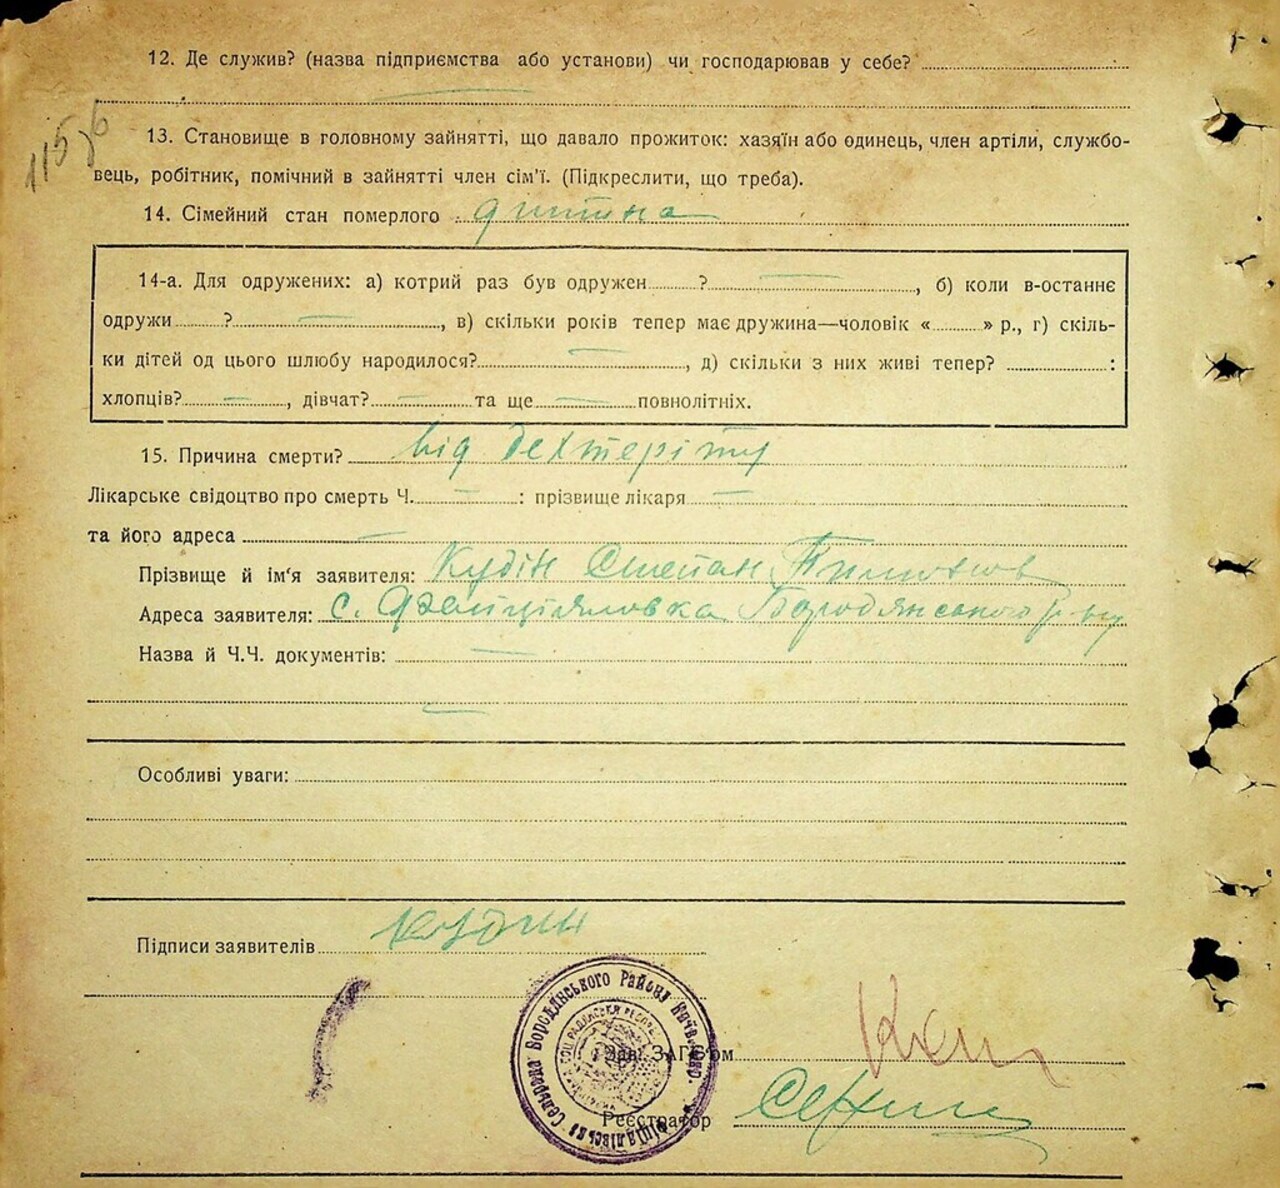 12. Де служив? (назва підприємства або установи) чи господарював у себе?
13. Становище в головному зайнятті, що давало прожиток: хазяїн або одинець, член артіли, службо-
вець, робітник, помічний в зайнятті член сім'ї. (Підкреслити, що треба).
14. Сімейний стан померлого дитина
14-а. Для одружених: а) котрий раз був одружен ? , б) коли в-останнє
одружи ? , в) скільки років тепер має дружина—чоловік « » р., г) скіль-
ки дітей од цього шлюбу народилося? , д) скільки з них живі тепер? :
хлопців? , дівчат? та ще повнолітніх.
15. Причина смерти? від дехтеріту
Лікарське свідоцтво про смерть Ч. : прізвище лікаря
та його адреса
Прізвище й ім'я заявителя: Кудін Степан
Адреса заявителя: с. Бородянського р-ну
Назва й Ч.Ч. документів:
Особливі уваги:
Підписи заявителів Кудин
Сельрада Бородянського Району Київ.
Зав. ЗАГС'ом
Реєстратор